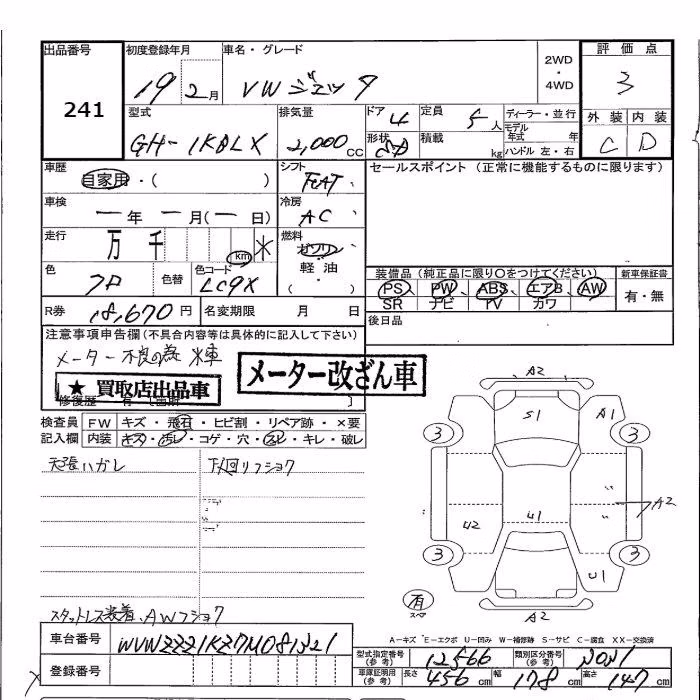 出品番号 初度登録年月 車名・グレード 評価点
241 19年 2月 VW ジェッタ 2WD・4WD 3
型式 排気量 ドア 4 定員 5人 ディーラー・並行 外装 内装
GH-1KBLX 2,000cc 形状 SD 積載 kg モデル年式 年 ハンドル 左・右 C D
車歴 シフト セールスポイント (正常に機能するものに限ります)
自家用・( ) FAT
車検 冷房
一年 一月(一日) AC
走行 燃料
万 千 km ＊ ガソリン・軽油・( )
色 色替 色コード 装備品 (純正品に限り○をつけてください) 新車保証書
クロ LC9X PS、PW、ABS、エアB、AW 有・無
SR ナビ TV カワ
R券 18,670円 名変期限 月 日 後日品
注意事項申告欄 (不具合内容等は具体的に記入して下さい)
メーター不良の為 ＊車
★買取店出品車 メーター改ざん車
修復歴
検査員 FW キズ・飛石・ヒビ割・リペア跡・×要
記入欄 内装 キズ・汚レ・コゲ・穴・ キレ・破レ
天張ハガレ 下回リフショク
A2
S1 A1
3 3
A2
U2 U1
3 3
U1
有 スペア A2
スタットレス装着、AWフショク
A-キズ E-エクボ U-凹み W-補修跡 S-サビ C-腐食 XX-交換済
車台番号 WVWZZZ1KZ7M081321 型式指定番号(参考) 12566 類別区分番号(参考) 2021
登録番号 車庫証明用(参考) 長さ 456cm 幅 178cm 高さ 147cm